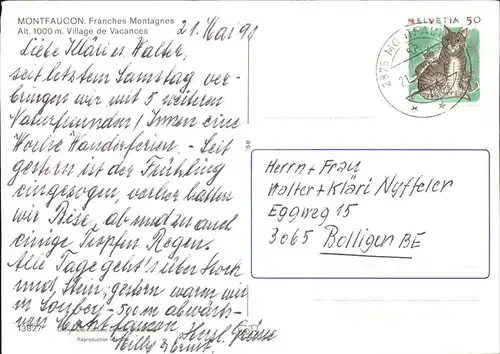 MONTFAUCON. Franches Montagnes
Alt. 1000 m. Village de Vacances
21. Mai 91
Liebe Kläri u. Walter,
seit letztem Samstag ver-
bringen wir mit 5 weiteren
Naturfreunden/Innen eine
Woche Wanderferien. - Seit
gestern ist der Frühling
eingezogen, vorher hatten
wir Bise, ab und zu auch
einige Tropfen Regen.
Alle Tage geht's über Stock
und Stein; gestern waren wir
in - 500 m abwärts -
von Montfaucon. Herzl. Grüsse
Willy & Ernst.
HELVETIA 50
2875 MONTFAUCON
Herrn + Frau
Walter + Kläri Nyffeler
Eggweg 15
3065 Bolligen BE